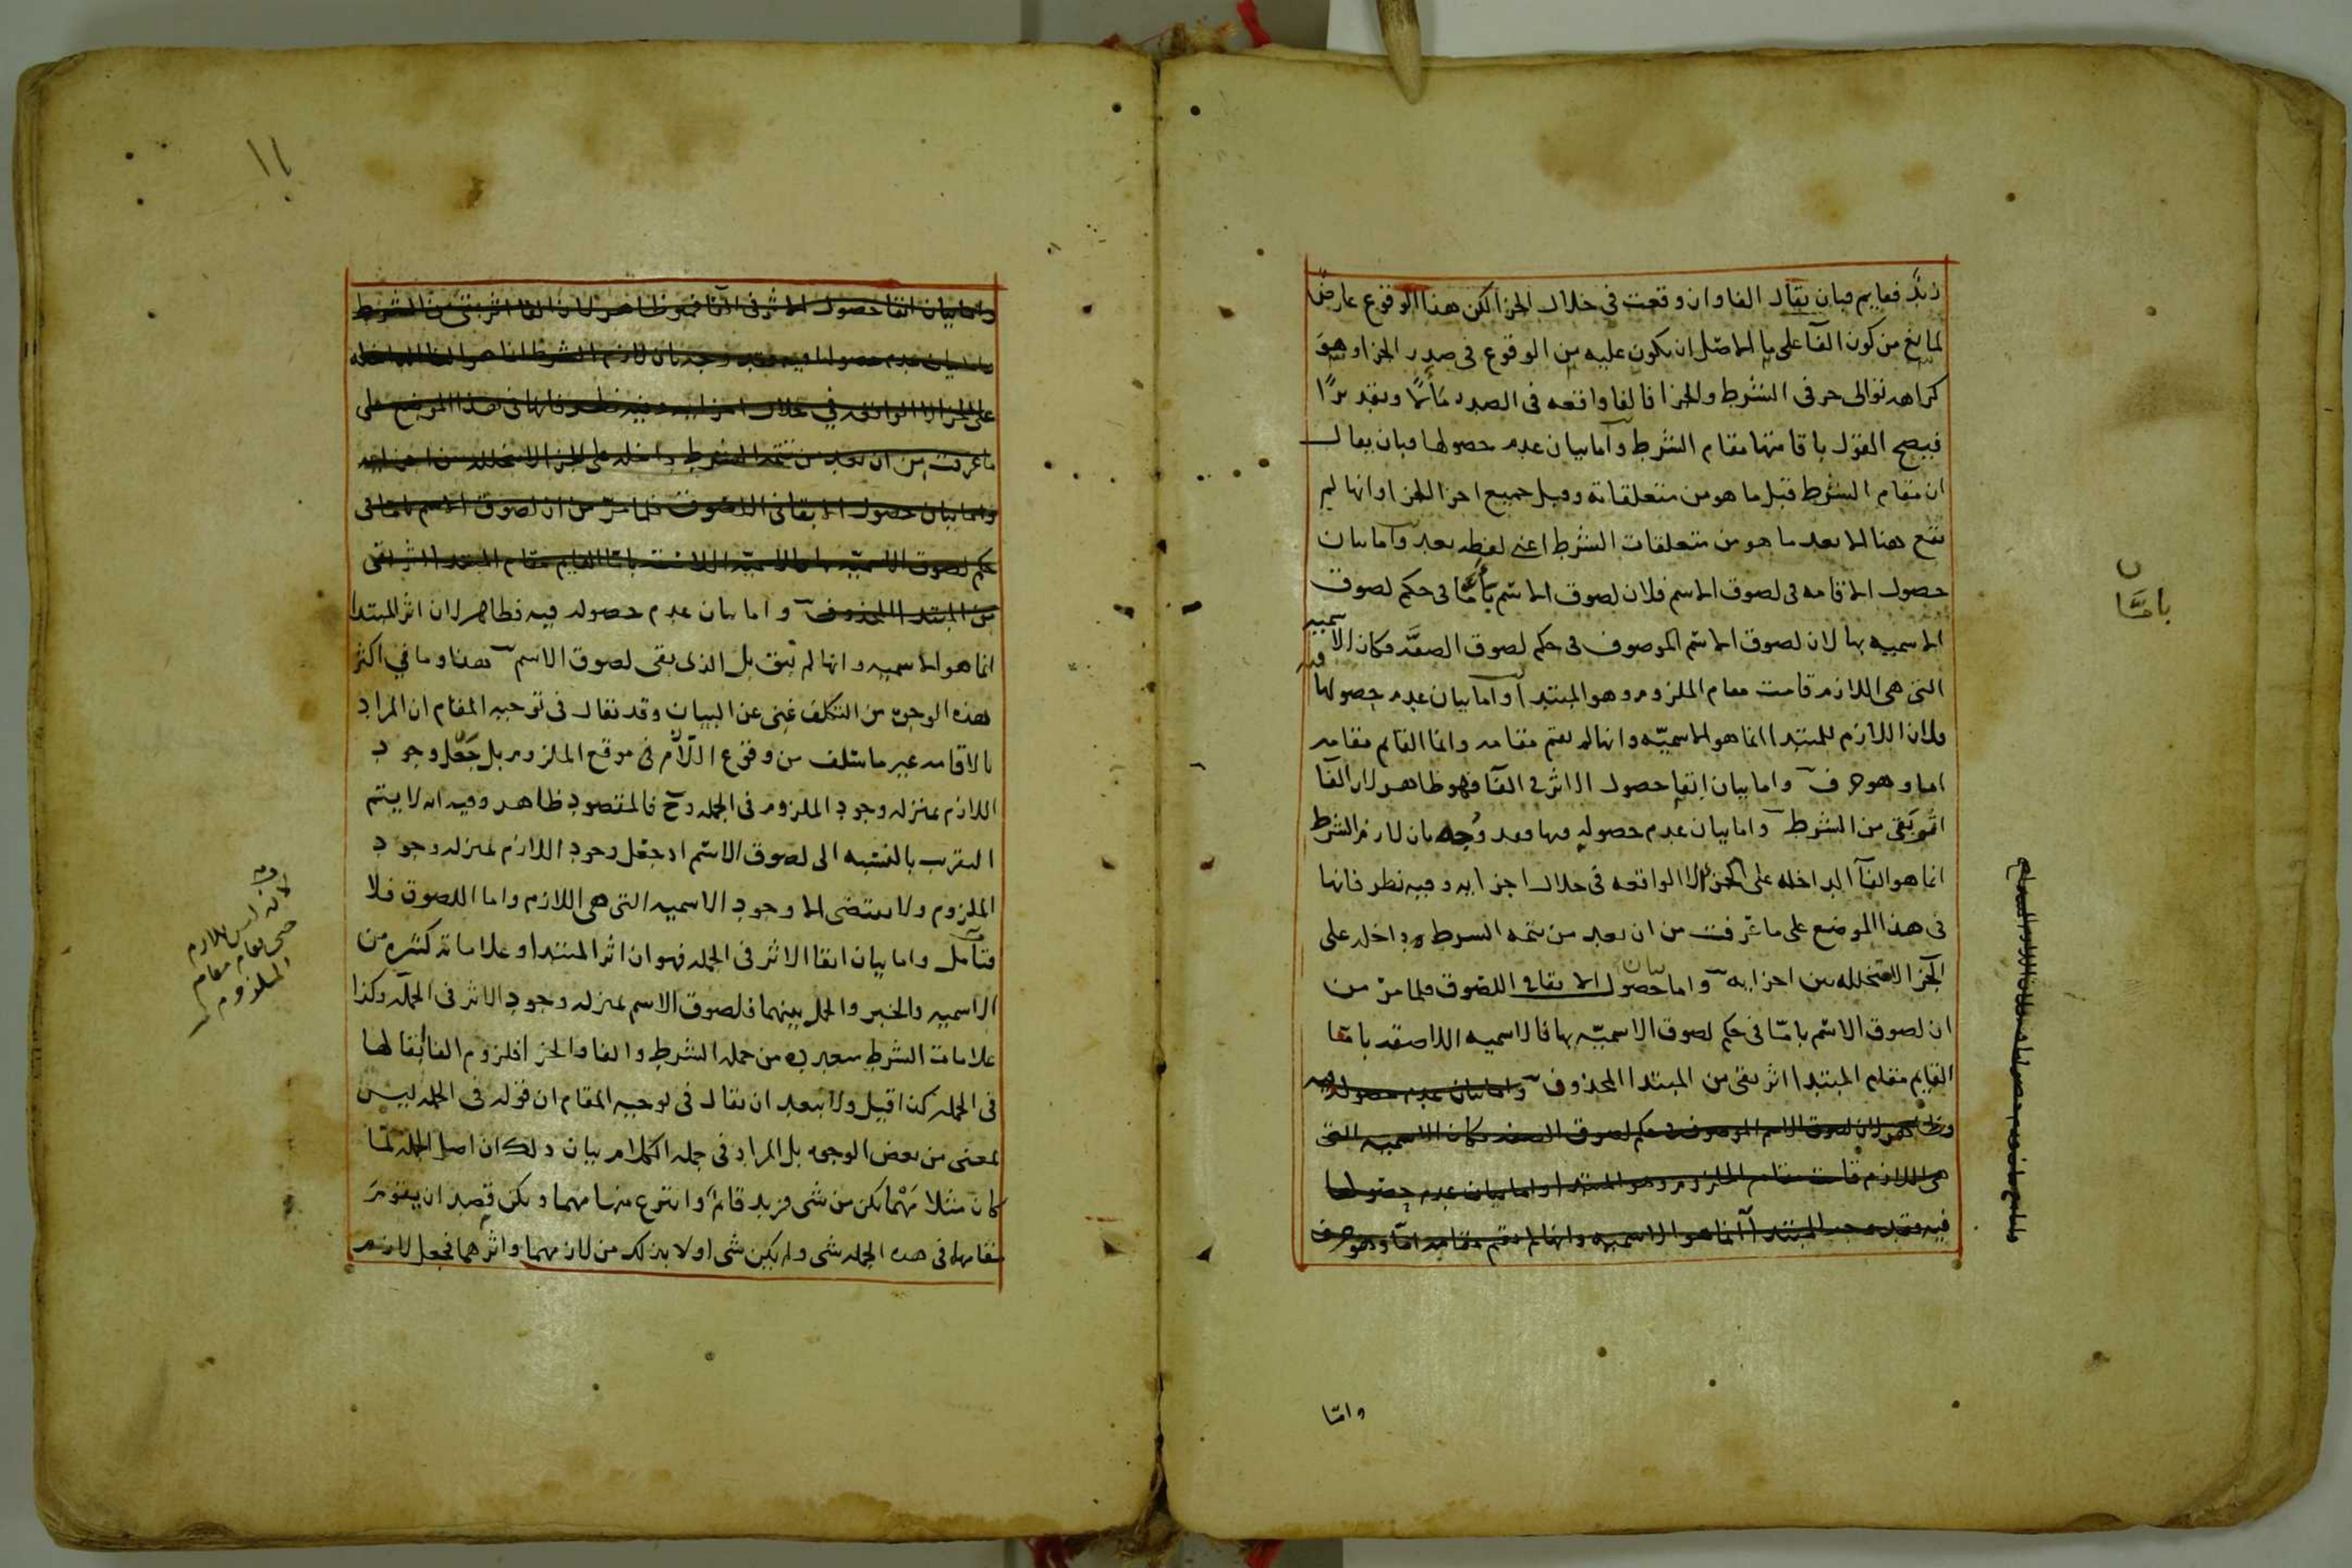 زيد فقايم فبان يقال الفا وان وقعت في خلال الجزا لكن هذا الوقوع عارض
لمانع من كون الفآ على ما الاصل ان يكون عليه من الوقوع في صدر الجزا وهو
كراهه توالى حرفى الشرط والجزا فالفا واقعه في الصدر وتقديرًا
فيصح القول باقامتها مقام الشرط وآما بيان عدم حصولها فبان يقال
ان مقام الشرط قبل ما هو من متعلقاته وقبل جميع اجزا الجزا وانها لم
تقع هنا الا بعد ما هو من متعلقات الشرط اعنى لفظه بعد وآما بيان
حصول الاقامه فى لصوق الاسم فلان لصوق الاسم بأمّا فى حكم لصوق
الاسميه بها لان لصوق الاسم الموصوف فى حكم لصوق الصفه فكان الاسميه
التى هى اللازم قامت مقام الملزوم وهو المبتدا وآما بيان عدم حصولها فيه
فلان اللازم للمبتدا انما هو الاسميّه وانها لم تقم مقامه وانما القايم مقامه
اما وهو حرف وامابيان ابقا حصول الاثر في الفآ فهو ظاهر لان الفآ
اثر بقى من الشرط وامابيان عدم حصوله فيها فقد وُجه بان لازم الشرط
انما هو الفآ الداخله على الجزا لا الواقعه فى خلال اجزايه وفيه نظر فانها
فى هذا الموضع على ما عرفت من ان بعد من تتمه الشرط داخله على
الجزا لا متخلله بين اجزايه واما بيان حصول الابقا في اللصوق فلما مرّ من
ان لصوق الاسم بامّا فى حكم لصوق الاسميّه بها فالاسميه اللاصقه بامّا
القايم مقام المبتدا اثر بقى من المبتدا المحذوف وامابيان عدم حصوله فيه
فظاهر لان لصوق الاسم الموصوف فى حكم لصوق الصفه فكان الاسميه التى
هى اللازم قامت مقام الملزوم وهو المبتدا وامابيان عدم حصولها
فيه فقد وجه للمبتدا انما هو الاسميه وانها لم تقم مقامه امّا وهو حرف
وامّا
بامَّا
وامابيان ابقا حصول الاثر فى الفا فهو ظاهر لان الفا اثر بقى من الشرط
وامابيان عدم حصوله فيه فقد وجه بان لازم الشرط انما هو الفا الداخله
على الجزا لا الواقعه في خلال اجزايه وفيه نظر فانها فى هذا الموضع على
ما عرفت من ان بعد من تتمه الشرط داخله على الجزا لا متخلله بين اجزايه
وامابيان حصول الابقا فى اللصوق فلما مرّ من ان لصوق الاسم بامّا فى
حكم لصوق الاسميّه بها فالاسميّه اللاصقه بامّا القايم مقام المبتدا اثر بقى
من المبتدا المحذوف واما بيان عدم حصوله فيه فظاهر لان اثر المبتدا
انما هو الاسميه وانها لم تبق بل الذى بقى لصوق الاسم هذا وما في اكثر
هذه الوجوه من التكلف غنى عن البيان وقد يقال فى توجيه المقام ان المراد
بالاقامه غير ما سلف من وقوع اللازم فى موقع الملزوم بل جعل وجود
اللازم بمنزله وجود الملزوم فى الجمله وح فالمقصود ظاهر وفيه انه لا يتم
التقريب بالنسبه الى لصوق الاسم اذ جعل وجود اللازم بمنزله وجود
الملزوم لا يقتضى الا وجود الاسميه التى هى اللازم واما اللصوق فلا
فتأمل وامابيان ابقا الاثر فى الجمله فهو ان اثر المبتدا وعلاماته كثيره من
الاسميه والخبر والحمل بينهما فلصوق الاسم بمنزله وجود الاثر فى الجمله وكذا
علامات الشرط متعدده من جمله الشرط والفا والجزا فلزوم الفا ابقا لها
فى الجمله كذا قيل ولا يبعد ان يقال فى توجيه المقام ان قوله فى الجمله ليس
بمعنى من بعض الوجوه بل المراد فى جمله الكلام بيان ذلك ان اصل الجمله لمّا
كان مثلا مَهْما يكن من شى فزيد قائم وانتزع منها مهما ويكن قصد ان يقوم
مقامها فى هذه الجمله شى ولم يكن شى اولا بذلك من لازمهما واثرهما فجعل لازم
لانه ليس اللازم
صح مقام مقام
الملزوم
١١